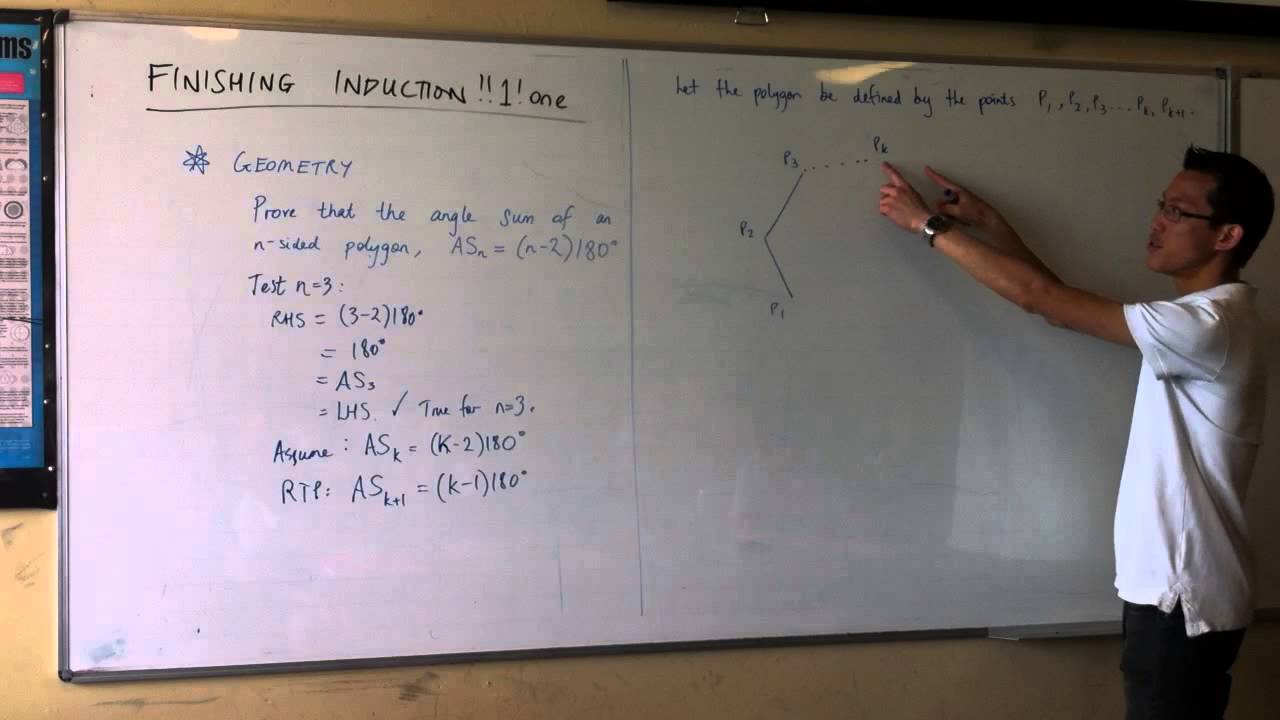 ms
FINISHING INDUCTION!!1!one
GEOMETRY
Prove that the angle sum of an
n-sided polygon, ASₙ = (n-2)180°
Test n=3:
RHS = (3-2)180°
= 180°
= AS₃
= LHS. ✓ True for n=3.
Assume: ASₖ = (k-2)180°
RTP: ASₖ₊₁ = (k-1)180°
Let the polygon be defined by the points P₁, P₂, P₃ ... Pₖ, Pₖ₊₁.
Pₖ
P₃
P₂
P₁